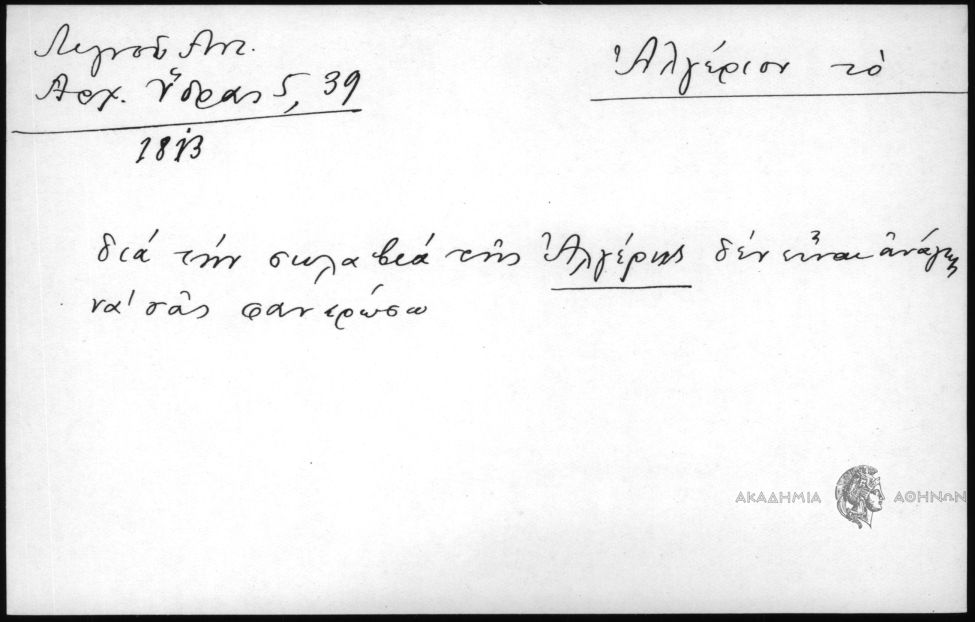 Λιγνοῦ Αντ.
Αρχ. Ὕδρας 5, 39
1813
Ἀλγέριον τὸ
διά τήν σκλαβιά τῆς Ἀλγέρης δέν εἶναι ἀνάγκη
νά σᾶς φανερώσω
ΑΚΑΔΗΜΙΑ ΑΘΗΝΩΝ